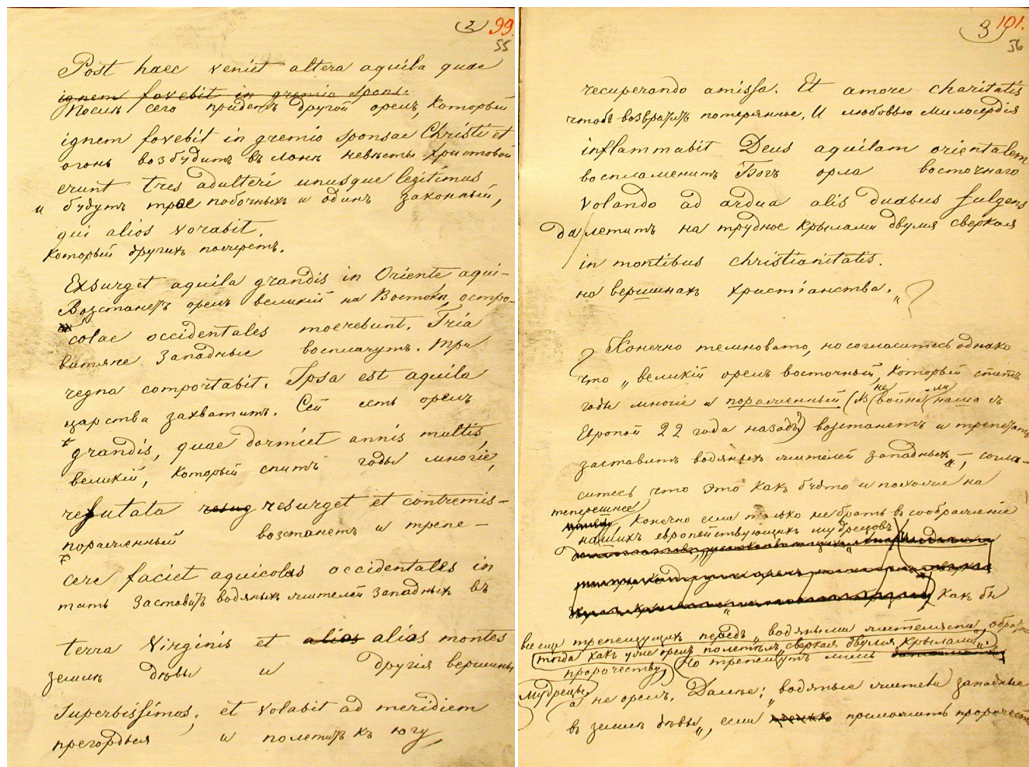 2 99.
55
Post haec veniet altera aquila quae
ignem fovebit in gremio spons.
Послѣ сего придетъ другой орелъ, который
ignem fovebit in gremio sponsae Christi et
огонь возбудитъ въ лонѣ невѣсты Христовой
erunt tres adulteri unusque legitimus
и будутъ трое побочныхъ и одинъ законный,
qui alios vorabit.
который другихъ пожретъ.
Exsurget aquila grandis in Oriente aqui-
Возстанетъ орелъ великій на Востокѣ, остро-
colae occidentales moerebunt. Tria
витяне западные восплачутъ. Три
regna comportabit. Ipsa est aquila
царства захватитъ. Сей есть орелъ
grandis, quae dormiet annis multis,
великій, который спитъ годы многіе,
refutata resurget et contremis-
пораженный возстанетъ и трепе-
cere faciet aquicolas occidentales in
тать заставитъ водяныхъ жителей западныхъ въ
terra Virginis et alios montes
землѣ дѣвы и другія вершины
superbissimos, et volabit ad meridiem
прегордыя и полетитъ къ югу,
3 101.
56
recuperando amissa. Et amore charitatis
чтобъ возвратить потерянное. И любовью милосердія
inflammabit Deus aquilam orientalem
воспламенитъ Богъ орла восточнаго
volando ad ardua alis duabus fulgens
да летитъ на трудное крылами двумя сверкая
in montibus christianitatis.
на вершинахъ христіанства." ?
Конечно темновато, но согласитесь однако
что „великій орелъ восточный, который спитъ
годы многіе и пораженный (не въ войнѣ ли наша съ
Европой 22 года назадъ?) возстанетъ и трепетать
заставитъ водяныхъ жителей западныхъ" –, согла-
ситесь что это какъ будто и похоже на
теперешнее
Конечно если только не брать въ соображеніе
нашихъ европействующихъ мудрецовъ
какъ бы
все еще трепещущихъ передъ „водяными жителями,
тогда какъ уже орелъ полетѣлъ „сверкая двумя крылами".
пророчеству. Но трепещутъ лишь
мудрецы
а не орелъ. Далѣе: водяные жители западные
въ землѣ дѣвы", если приложить